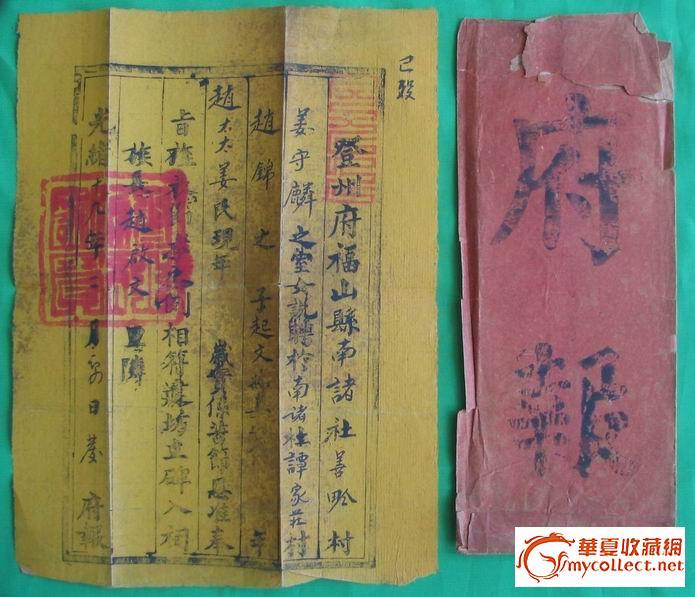 已歿
登州府福山縣南諸社善疃村
姜守麟之室女說聘於南諸社譚家莊村
趙錦之子起文為妻 年
趙太太姜氏現年 歲實係苦節恩准奉
旨旌 例相符建坊立碑入祠
族長趙啟文 里隣
光緒十九年 月 日發 府報
府報
華夏收藏網
mycollect.net